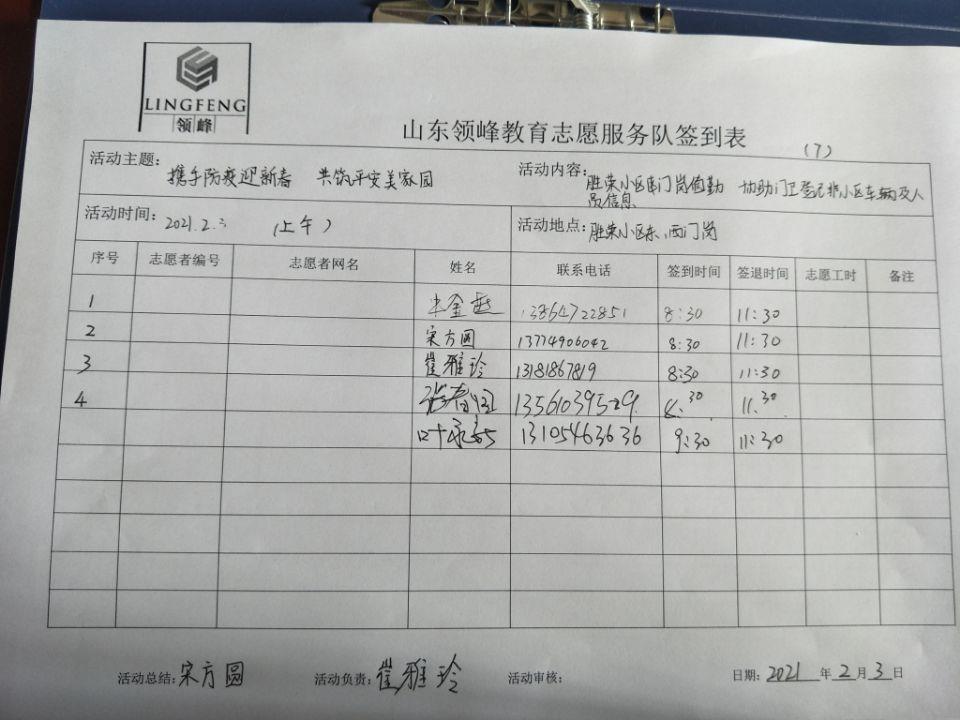 LINGFENG
领峰
山东领峰教育志愿服务队签到表
(7)
活动主题: 携手防疫迎新春 共筑平安美家园
活动内容: 胜荣小区南门岗值勤 协助门卫登记非小区车辆及人
员信息
活动时间: 2021.2.3 (上午)
活动地点: 胜荣小区东、西门岗
序号 志愿者编号 志愿者网名 姓名 联系电话 签到时间 签退时间 志愿工时 备注
1 13864722851 8:30 11:30
2 宋方圆 13774906042 8:30 11:30
3 崔雅玲 13181867819 8:30 11:30
4 13561039529 8:30 11:30
叶 13105463636 9:30 11:30
活动总结: 宋方圆 活动负责: 崔雅玲 活动审核: 日期: 2021 年 2 月 3 日